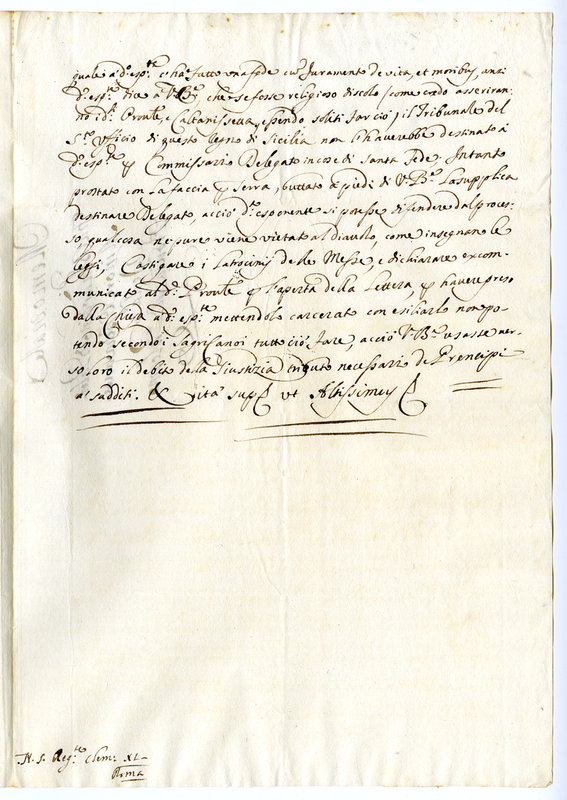 quale a d.º esp.te c'ha fatto una fede con Juramento de vita, et moribus, anzi
d.º esp.te dice a V. B.ne che se fosse religioso discolo (come credo asseriran-
no id.i Pron.le, e Caltanissetta, essendo soliti farcio) il Tribunale del
S.to Ufficio di questo Regno di Sicilia non l'haverebbe destinato a
d.º esp.te Commissario Delegato in cose di Santa Fede. Intanto
prostato con la faccia terra, buttato a piedi di V. B.ne La supplica
destinare Delegato, acciò d.º esponente si potesse difendere dal proces-
so, qual cosa ne pure viene vietato al diavolo, come insegnano le
leggi, Castigare i Latrocinij delle Messe, e dichiarare excom-
municato al d.º Pron.le l'aperta della Lettera, haver preso
dalla a d.º esp.te mettendolo carcerato con esiliarlo non po-
tendo secondo i Sagri Canoni tutto ciò fare, acciò V. B.ne usasse ver-
so loro il debito della Giustizia tributo necessari de Prencipi
a' sudditi. & ita sup. ut Altissimus
N. S. Reg.te Clem: XI
Roma